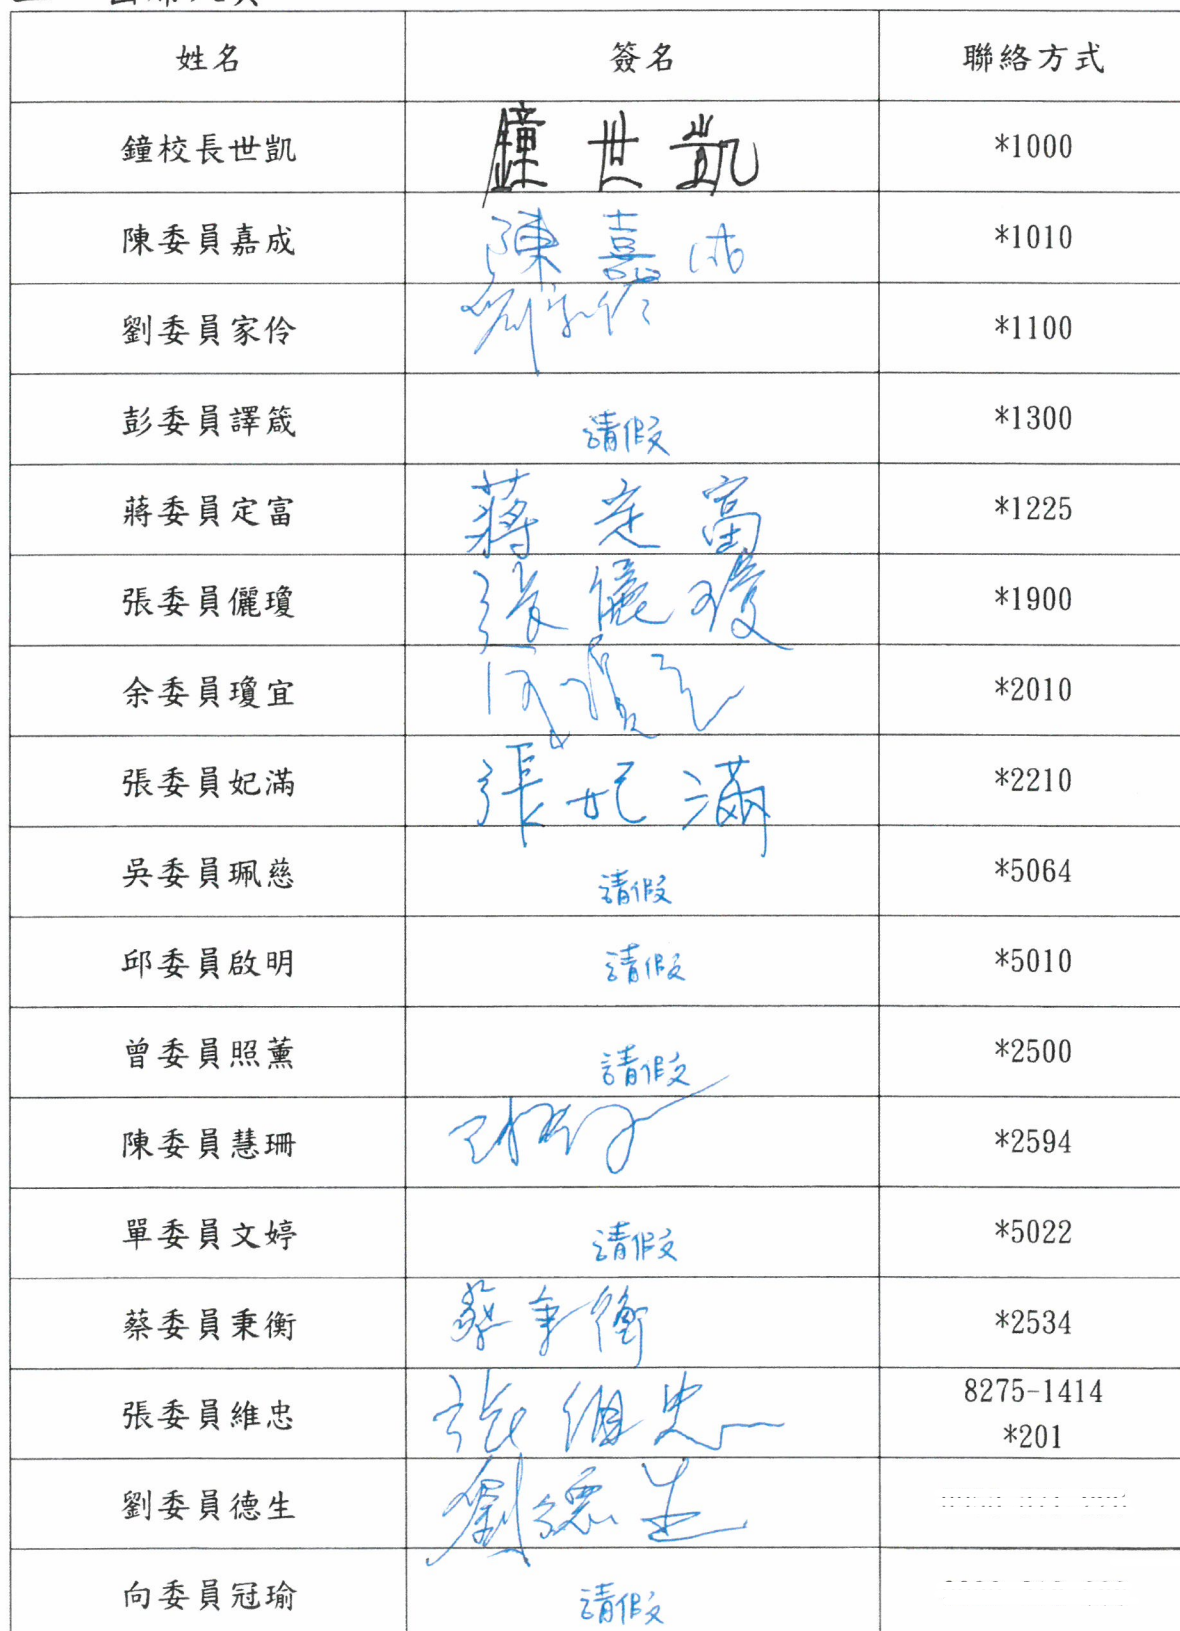 姓名 簽名 聯絡方式
鐘校長世凱 鐘世凱 *1000
陳委員嘉成 陳嘉成 *1010
劉委員家伶 劉家伶 *1100
彭委員譯箴 請假 *1300
蔣委員定富 蔣定富 *1225
張委員儷瓊 張儷瓊 *1900
余委員瓊宜 *2010
張委員妃滿 張妃滿 *2210
吳委員珮慈 請假 *5064
邱委員啟明 請假 *5010
曾委員照薰 請假 *2500
陳委員慧珊 *2594
單委員文婷 請假 *5022
蔡委員秉衡 蔡秉衡 *2534
張委員維忠 張維忠 8275-1414
*201
劉委員德生 劉德生
向委員冠瑜 請假